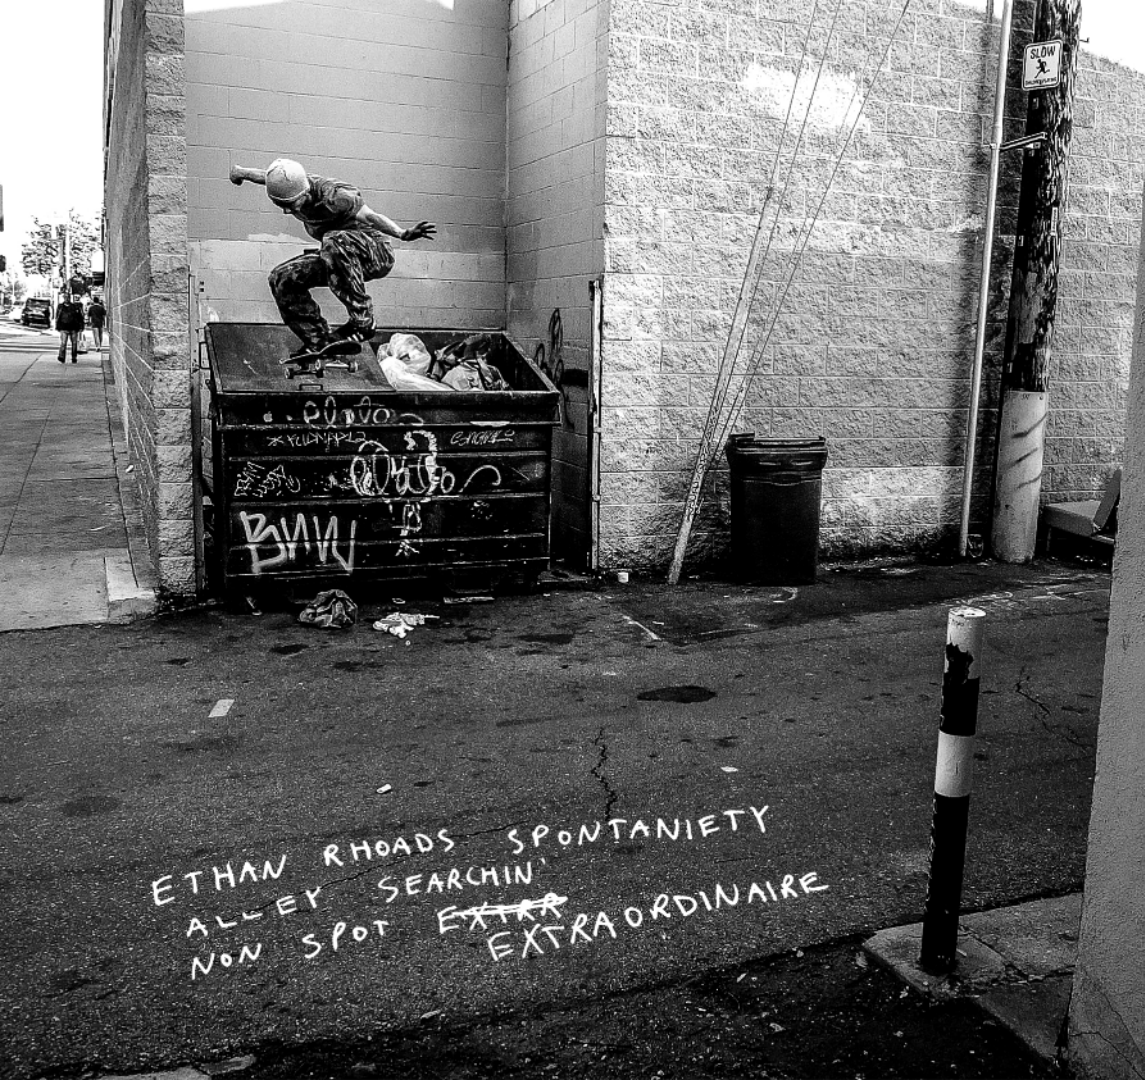 SLOW
BNW
ETHAN RHOADS SPONTANIETY
ALLEY SEARCHIN'
NON SPOT EXTRR
EXTRAORDINAIRE